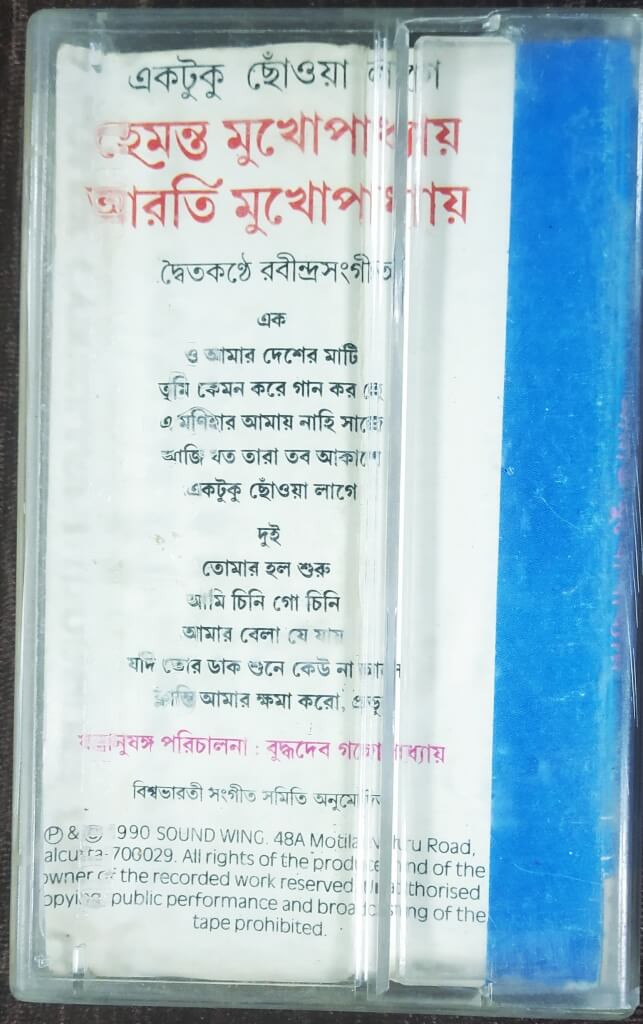 একটুকু ছোঁওয়া লাগে
হেমন্ত মুখোপাধ্যায়
আরতি মুখোপাধ্যায়
দ্বৈতকণ্ঠে রবীন্দ্রসংগীত
এক
ও আমার দেশের মাটি
তুমি কেমন করে গান কর হে
এ মণিহার আমায় নাহি সাজে
আজি যত তারা তব আকাশে
একটুকু ছোঁওয়া লাগে
দুই
তোমার হল শুরু
আমি চিনি গো চিনি
আমার বেলা যে যায়
যদি তোর ডাক শুনে কেউ না আসে
ক্লান্তি আমার ক্ষমা করো, প্রভু
যন্ত্রানুষঙ্গ পরিচালনা : বুদ্ধদেব গঙ্গোপাধ্যায়
বিশ্বভারতী সংগীত সমিতি অনুমোদিত
Ⓟ & © 1990 SOUND WING. 48A Motilal Nehru Road,
Calcutta-700029. All rights of the producer and of the
owner of the recorded work reserved. Unauthorised
copying, public performance and broadcasting of the
tape prohibited.